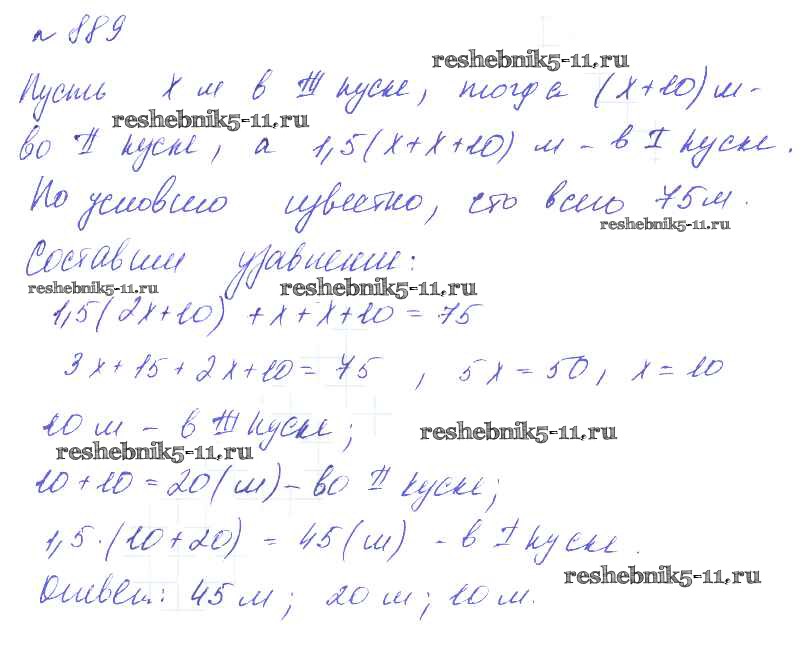 № 889
reshebnik5-11.ru
Пусть x м в III куске, тогда (x+10) м -
reshebnik5-11.ru
во II куске, а 1,5(x+x+10) м - в I куске.
По условию известно, что всего 75 м.
reshebnik5-11.ru
Составим уравнение:
reshebnik5-11.ru reshebnik5-11.ru
1,5(2x+10) + x + x + 10 = 75
3x + 15 + 2x + 10 = 75 , 5x = 50, x = 10
10 м - в III куске;
reshebnik5-11.ru
reshebnik5-11.ru
10 + 10 = 20 (м) - во II куске;
1,5·(10+20) = 45 (м) - в I куске.
reshebnik5-11.ru
Ответ: 45 м; 20 м; 10 м.